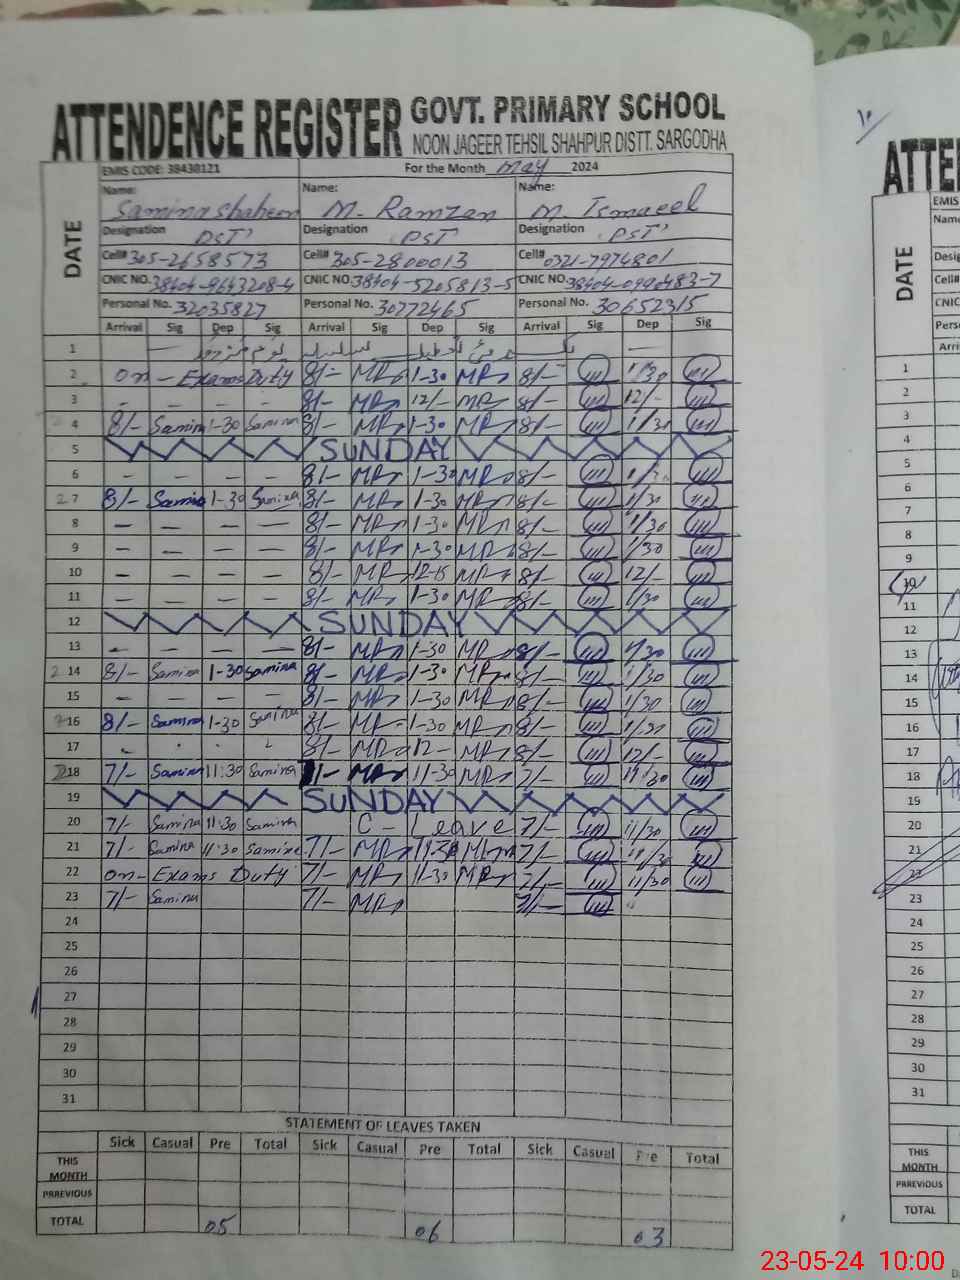 ATTENDENCE REGISTER GOVT. PRIMARY SCHOOL
NOON JAGEER TEHSIL SHAHPUR DISTT. SARGODHA
DATE EMIS CODE: 38430121 For the Month May 2024
Name: Name: Name:
Samina shaheen M. Ramzan M. Ismaeel
Designation PST Designation PST Designation PST
Cell# 305-2658573 Cell# 305-2800013 Cell# 0321-7974801
CNIC NO. 38404-9643208-4 CNIC NO. 38404-5205813-5 CNIC NO. 38404-0990483-7
Personal No. 32035827 Personal No. 30772465 Personal No. 30652315
Arrival Sig Dep Sig Arrival Sig Dep Sig Arrival Sig Dep Sig
1
2 on - Exams Duty 8/- MR 1-30 MR 8/- 1/30
3 - - - - 8/- MR 12/- MR 8/- 12/-
4 8/- Samina 1-30 Samina 8/- MR 1-30 MR 8/- 1/30
5 SUNDAY
6 - - - - 8/- MR 1-30 MR 8/- 1/30
27 8/- Samina 1-30 Samina 8/- MR 1-30 MR 8/- 1/30
8 - - - - 8/- MR 1-30 MR 8/- 1/30
9 - - - - 8/- MR 1-30 MR 8/- 1/30
10 - - - - 8/- MR 12-15 MR 8/- 12/-
11 - - - - 8/- MR 1-30 MR 8/- 1/30
12 SUNDAY
13 - - - - 8/- MR 1-30 MR 8/- 1/30
2 14 8/- Samina 1-30 Samina 8/- MR 1-30 MR 8/- 1/30
15 - - - - 8/- MR 1-30 MR 8/- 1/30
16 8/- Samina 1-30 Samina 8/- MR 1-30 MR 8/- 1/30
17 8/- MR 12- MR 8/- 12/-
18 7/- Samina 11:30 Samina MR 11-30 MR 7/- 11/30
19 SUNDAY
20 7/- Samina 11:30 Samina C - Leave 7/- 11/30
21 7/- Samina 11:30 Samina 7/- MR 11-30 MR 7/- 11/30
22 on- Exams Duty 7/- MR 11-30 MR 7/- 11/30
23 7/- Samina 7/- MR 7/-
24
25
26
27
28
29
30
31
STATEMENT OF LEAVES TAKEN
Sick Casual Pre Total Sick Casual Pre Total Sick Casual Pre Total
THIS MONTH
PRREVIOUS
TOTAL 05 06 03
ATTEN
DATE EMIS
Name
Desig
Cell#
CNIC
Pers
Arri
1
2
3
4
5
6
7
8
9
10
11
12
13
14
15
16
17
18
19
20
21
22
23
24
25
26
27
28
29
30
31
THIS MONTH
PRREVIOUS
TOTAL
23-05-24 10:00